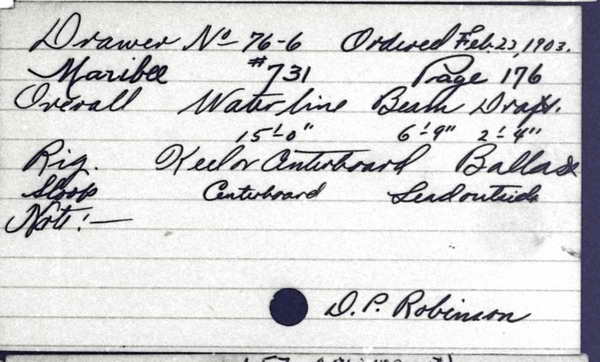 Drawer No 76-6 Ordered Feb. 23, 1903.
Maribee #731 Page 176
Overall Waterline Beam Draft.
15'-0" 6'-9" 2'-4"
Rig. Keel or Centerboard Ballast
Sloop Centerboard Lead outside
Note:—
D. P. Robinson